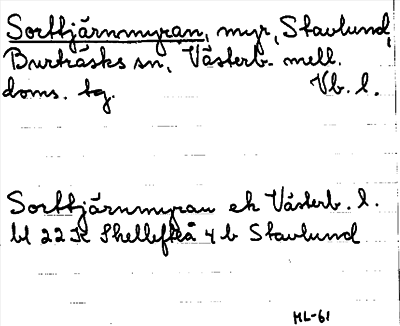 Sorttjärnmyran, myr, Stavlund,
Burträsks sn, Västerb. mell.
doms. tg. Vb. l.
Sorttjärnmyran ek Västerb. l.
bl 22 K Skellefteå 4 b Stavlund
ML-61